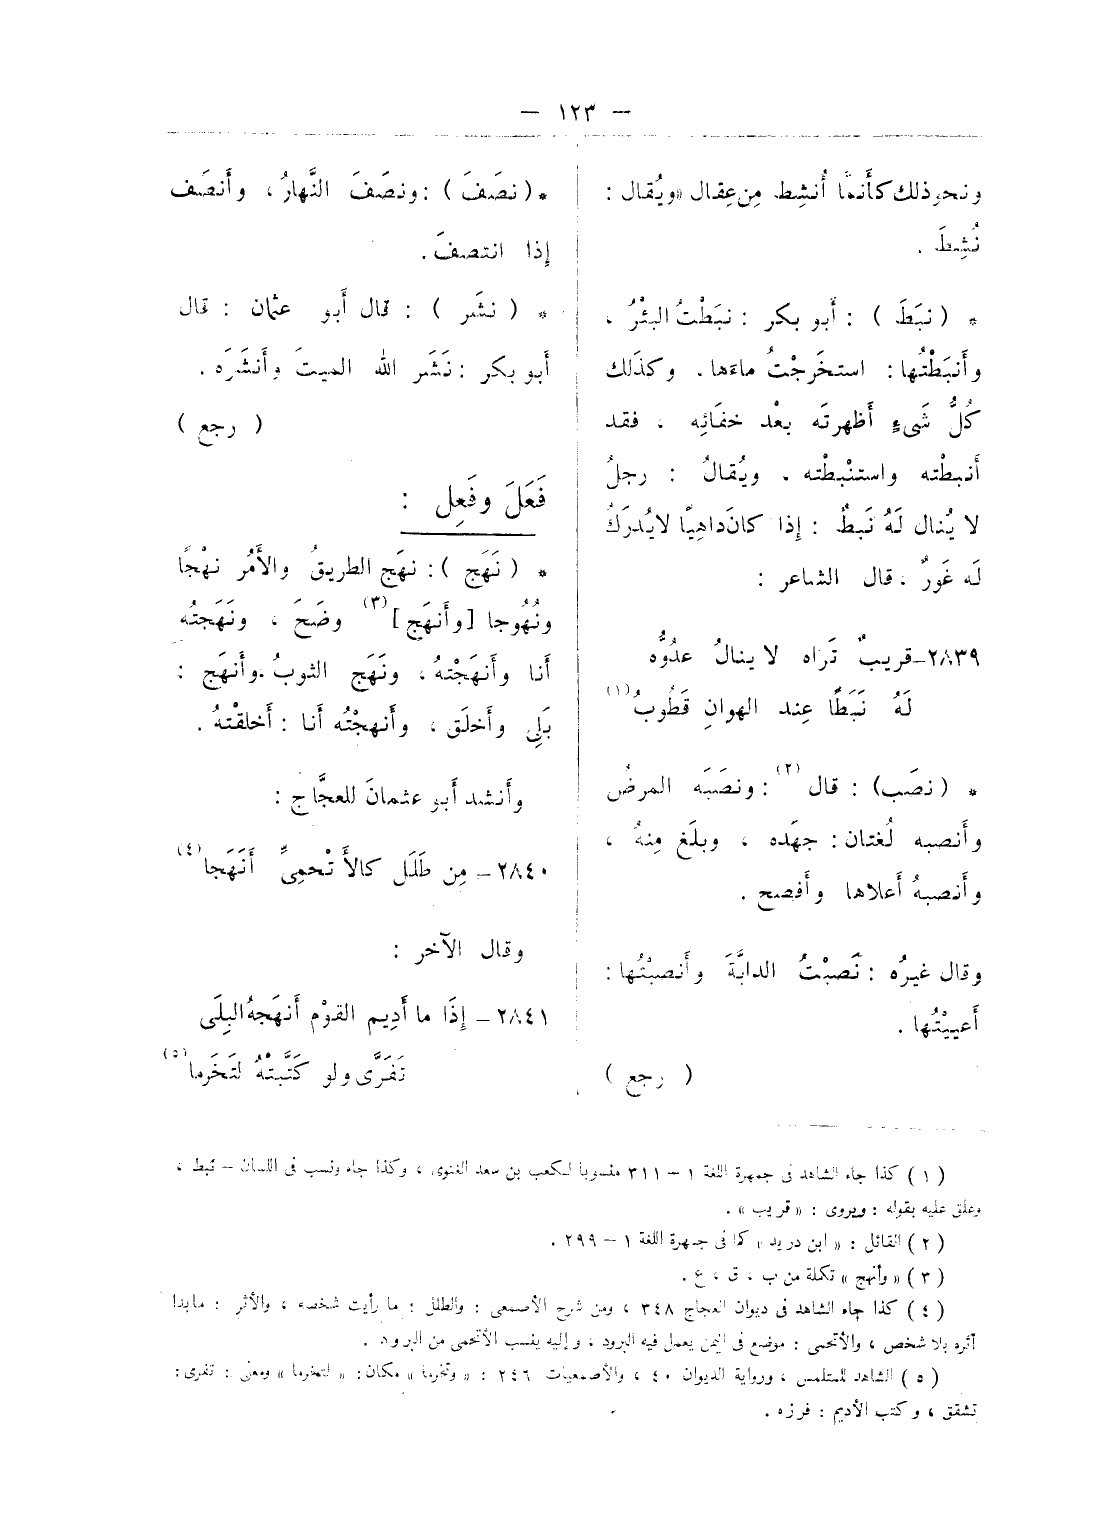 — ١٢٣ —
ونحو ذلك كأَنمَّا أُنشِط مِن عِقال «ويُقال :
نُشِطَ .
* ( نبَطَ ) : أَبو بكر : نبَطْتُ البئْرُ ،
وأَنبَطْتُها : استخَرجْتُ ماءَها . وكذَلك
كُلُّ شَىءٍ أَظهرتَه بعْد خفَائِه ، فقد
أَنبطْته واستنْبطْته . ويُقالُ : رجلُ
لا يُنال لَهُ نَبطٌ : إِذا كان دَاهِيًا لا يُدرَكُ
لَه غَورٌ . قال الشاعر :
٢٨٣٩– قريبٌ تَراه لا ينالُ عدُوُّه
لَهُ نَبَطًا عِند الهوانِ قَطُوبُ (١)
* (نصَب) : قال (٢) : ونصَبَه المرضُ
وأَنصبه لُغتان : جهَده ، وبلَغ مِنهُ ،
وأَنصبهُ أَعلاها وأَفصح .
وقال غيرُه : نَصبْتُ الدابَّةَ وأَنصبْتُها :
أَعييْتُها .
( رجع )
* ( نصَفَ ) : ونصَفَ النَّهارُ ، وأَنصَف
إِذا انتصفَ .
* ( نشَر ) : قال أَبو عثمان : قال
أَبو بكر : نَشَر الله الميتَ وأَنشَرَه .
( رجع )
فَعَلَ وفَعِل :
* ( نَهَج ) : نهَج الطريقُ والأَمُر نهْجًا
ونُهُوجا [وأَنهَج] (٣) وضَحَ ، ونَهَجتُه
أَنا وأَنهَجْتهُ ، ونَهَج الثوبُ وأَنهَج :
بَلِى وأَخلَق ، وأَنهجْتُه أَنا : أَخلقْتهُ .
وأَنشد أَبو عثمانَ للعجَّاج :
٢٨٤٠ – مِن طَلَل كالأَتْحمِىِّ أَنَهَجا (٤)
وقال الآخر :
٢٨٤١ – إِذَا ما أَدِيم القوْم أَنهَجهُ البِلَى
تَفَرَّى ولو كَتَّبتْهُ لتَخَرما (٥)
( ١ ) كذا جاء الشاهد فى جمهرة اللغة ١ – ٣١١ منسوبا لكعب بن سعد الغنوى ، وكذا جاء ونسب فى اللسان – نبط ،
وعلق عليه بقوله : ويروى : « قريب » .
( ٢ ) القائل : « ابن دريد » كما فى جمهرة اللغة ١ – ٢٩٩ .
( ٣ ) « وأنهج » تكملة من ب ، ق ، ع .
( ٤ ) كذا جاء الشاهد فى ديوان العجاج ٣٤٨ ، ومن شرح الأصمعى : والطلل : ما رأيت شخصه ، والأثر : مابدا
أثره بلا شخص ، والأتحمى : موضع فى اليمن يعمل فيه البرود ، وإليه ينسب الأتحمى من البرود .
( ٥ ) الشاهد للمتلمس ، ورواية الديوان ٤٠ ، والأصمعيات ٢٤٦ : « وتخرما » مكان : « لتخرما » ومعنى : تفرى :
تشقق ، وكتب الأديم : فرزه .